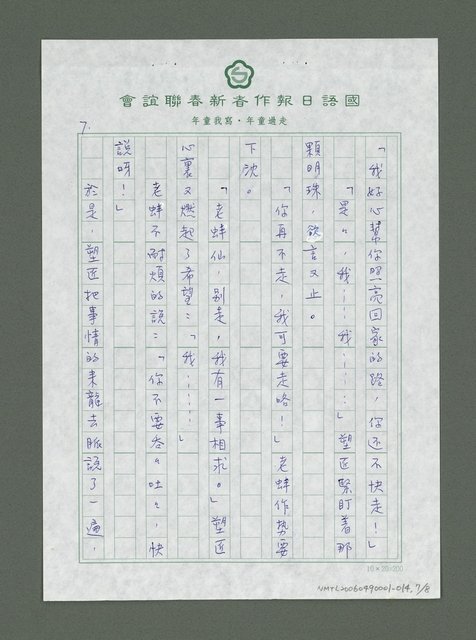 國語日報作者新春聯誼會
走過童年・寫我童年
7.
「我好心幫你照亮回家的路，你還不快走！」
「是々，我……我……」塑匠緊盯着那
顆明珠，欲言又止。
「你再不走，我可要走咯！」老蚌作勢要
下沈。
「老蚌仙，別走，我有一事相求。」塑匠
心裏又燃起了希望：「我……」
老蚌不耐煩的說：「你不要吞々吐々，快
說呀！」
於是，塑匠把事情的來龍去脈說了一遍，
10×20=200
NMTL20060490001-014, 7/8